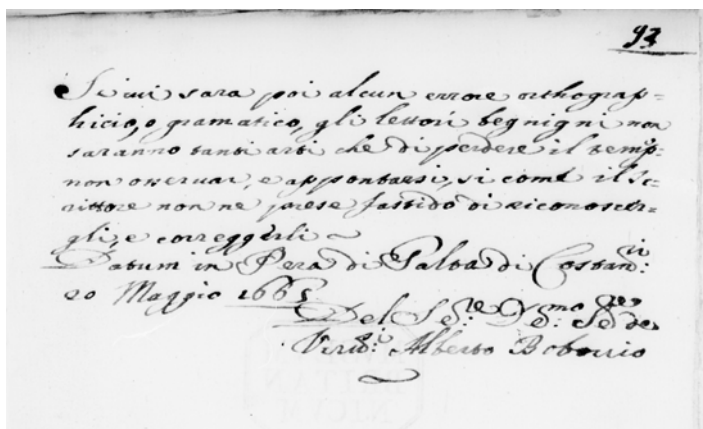 93
Si vi sara poi alcun errore orthograp=
hicio, o gramatico, gli lettori begnigni non
saranno tanti arti che di perdere il temp:
non osservar, e appontarsi, si come il sc=
rittore non ne prese fastido di riconoscer=
gli, e correggerli
Datum in Pera di Galata di Costan:
20 Maggio 1665
Del
Alberto Bobovio